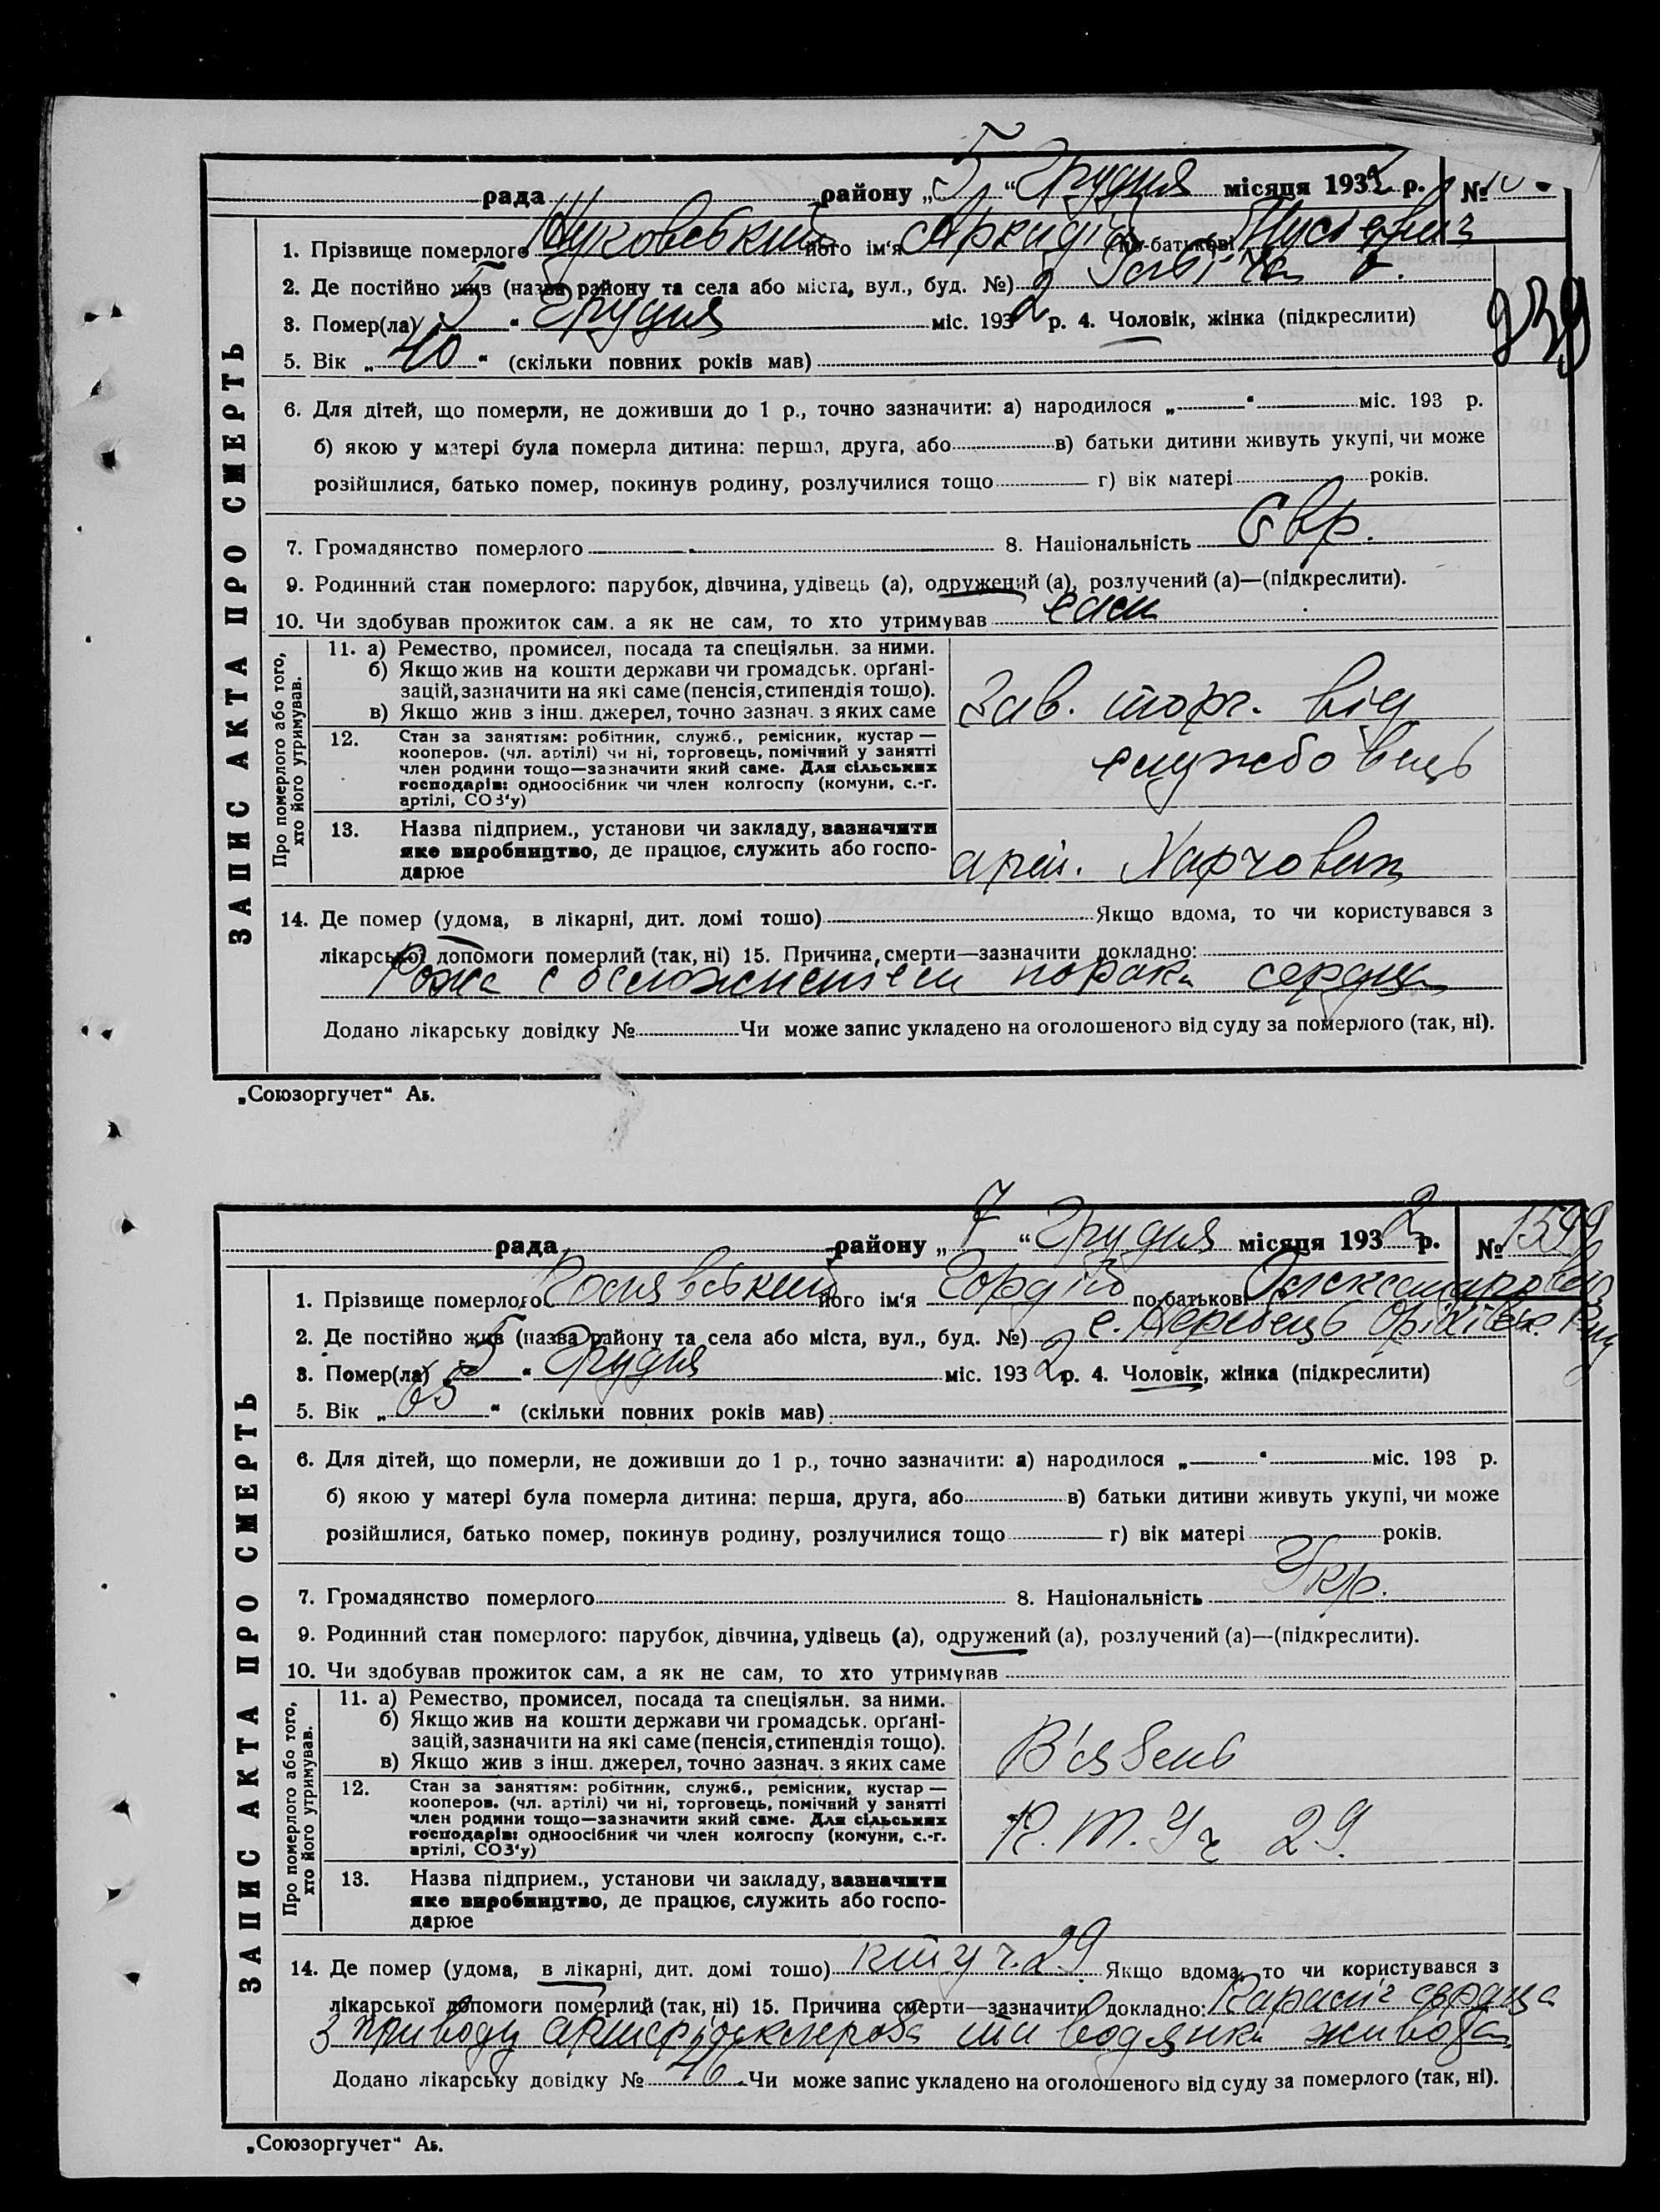 рада района „5“ Грудня місяця 1932 р. №
1. Прізвище померлого Жуковський його ім'я Аркадій по-батькові
2. Де постійно жив (назва району та села або міста, вул., буд. №)
3. Помер(ла) 5 “ Грудня міс. 1932 р. 4. Чоловік, жінка (підкреслити)
239
5. Вік „ 40 “ (скільки повних років мав)
6. Для дітей, що померли, не доживши до 1 р., точно зазначити: а) народилося „ “ міс. 193 р.
б) якою у матері була померла дитина: перша, друга, або в) батьки дитини живуть укупі, чи може
розійшлися, батько помер, покинув родину, розлучилися тощо г) вік матері років.
7. Громадянство померлого 8. Національність Євр.
9. Родинний стан померлого: парубок, дівчина, удівець (а), одружений (а), розлучений (а)—(підкреслити).
10. Чи здобував прожиток сам, а як не сам, то хто утримував сам
ЗАПИС АКТА ПРО СМЕРТЬ
Про померлого або того, хто його утримував.
11. а) Ремество, промисел, посада та спеціяльн. за ними.
б) Якщо жив на кошти держави чи громадськ. орґані-
зацій, зазначити на які саме (пенсія, стипендія тощо).
в) Якщо жив з інш. джерел, точно зазнач. з яких саме
Зав. торг. від
12. Стан за заняттям: робітник, служб., ремісник, кустар —
кооперов. (чл. артілі) чи ні, торговець, помічний у занятті
член родини тощо—зазначити який саме. Для сільських
господарів: одноосібник чи член колгоспу (комуни, с.-г.
артілі, СОЗ'у)
службовець
13. Назва підприєм., установи чи закладу, зазначити
яке виробництво, де працює, служить або госпо-
дарює
14. Де помер (удома, в лікарні, дит. домі тощо) Якщо вдома, то чи користувався з
лікарської допомоги померлий (так, ні) 15. Причина смерти—зазначити докладно:
Рожа с осложнением порока сердца
Додано лікарську довідку № Чи може запис укладено на оголошеного від суду за померлого (так, ні).
„Союзоргучет“ Аь.
рада району „7“ Грудня місяця 1932 р. № 1599
1. Прізвище померлого його ім'я Гордій по-батькові Олександрович
2. Де постійно жив (назва району та села або міста, вул., буд. №) с. Жеребець Оріхівськ.
3. Помер(ла) „5“ Грудня міс. 1932 р. 4. Чоловік, жінка (підкреслити)
5. Вік „ 65 “ (скільки повних років мав)
6. Для дітей, що померли, не доживши до 1 р., точно зазначити: а) народилося „ “ міс. 193 р.
б) якою у матері була померла дитина: перша, друга, або в) батьки дитини живуть укупі, чи може
розійшлися, батько помер, покинув родину, розлучилися тощо г) вік матері років.
7. Громадянство померлого 8. Національність Укр.
9. Родинний стан померлого: парубок, дівчина, удівець (а), одружений (а), розлучений (а)—(підкреслити).
10. Чи здобував прожиток сам, а як не сам, то хто утримував
ЗАПИС АКТА ПРО СМЕРТЬ
Про померлого або того, хто його утримував.
11. а) Ремество, промисел, посада та спеціяльн. за ними.
б) Якщо жив на кошти держави чи громадськ. орґані-
зацій, зазначити на які саме (пенсія, стипендія тощо).
в) Якщо жив з інш. джерел, точно зазнач. з яких саме
В'язень
12. Стан за заняттям: робітник, служб., ремісник, кустар —
кооперов. (чл. артілі) чи ні, торговець, помічний у занятті
член родини тощо—зазначити який саме. Для сільських
господарів: одноосібник чи член колгоспу (комуни, с.-г.
артілі, СОЗ'у)
К.Т.У ч 29.
13. Назва підприєм., установи чи закладу, зазначити
яке виробництво, де працює, служить або госпо-
дарює
14. Де помер (удома, в лікарні, дит. домі тощо) КТУ ч. 29 Якщо вдома, то чи користувався з
лікарської допомоги померлий (так, ні) 15. Причина смерти—зазначити докладно: Параліч сердца
з приводу артеріосклероза та водянки живота
Додано лікарську довідку № 46 Чи може запис укладено на оголошеного від суду за померлого (так, ні).
„Союзоргучет“ Аь.